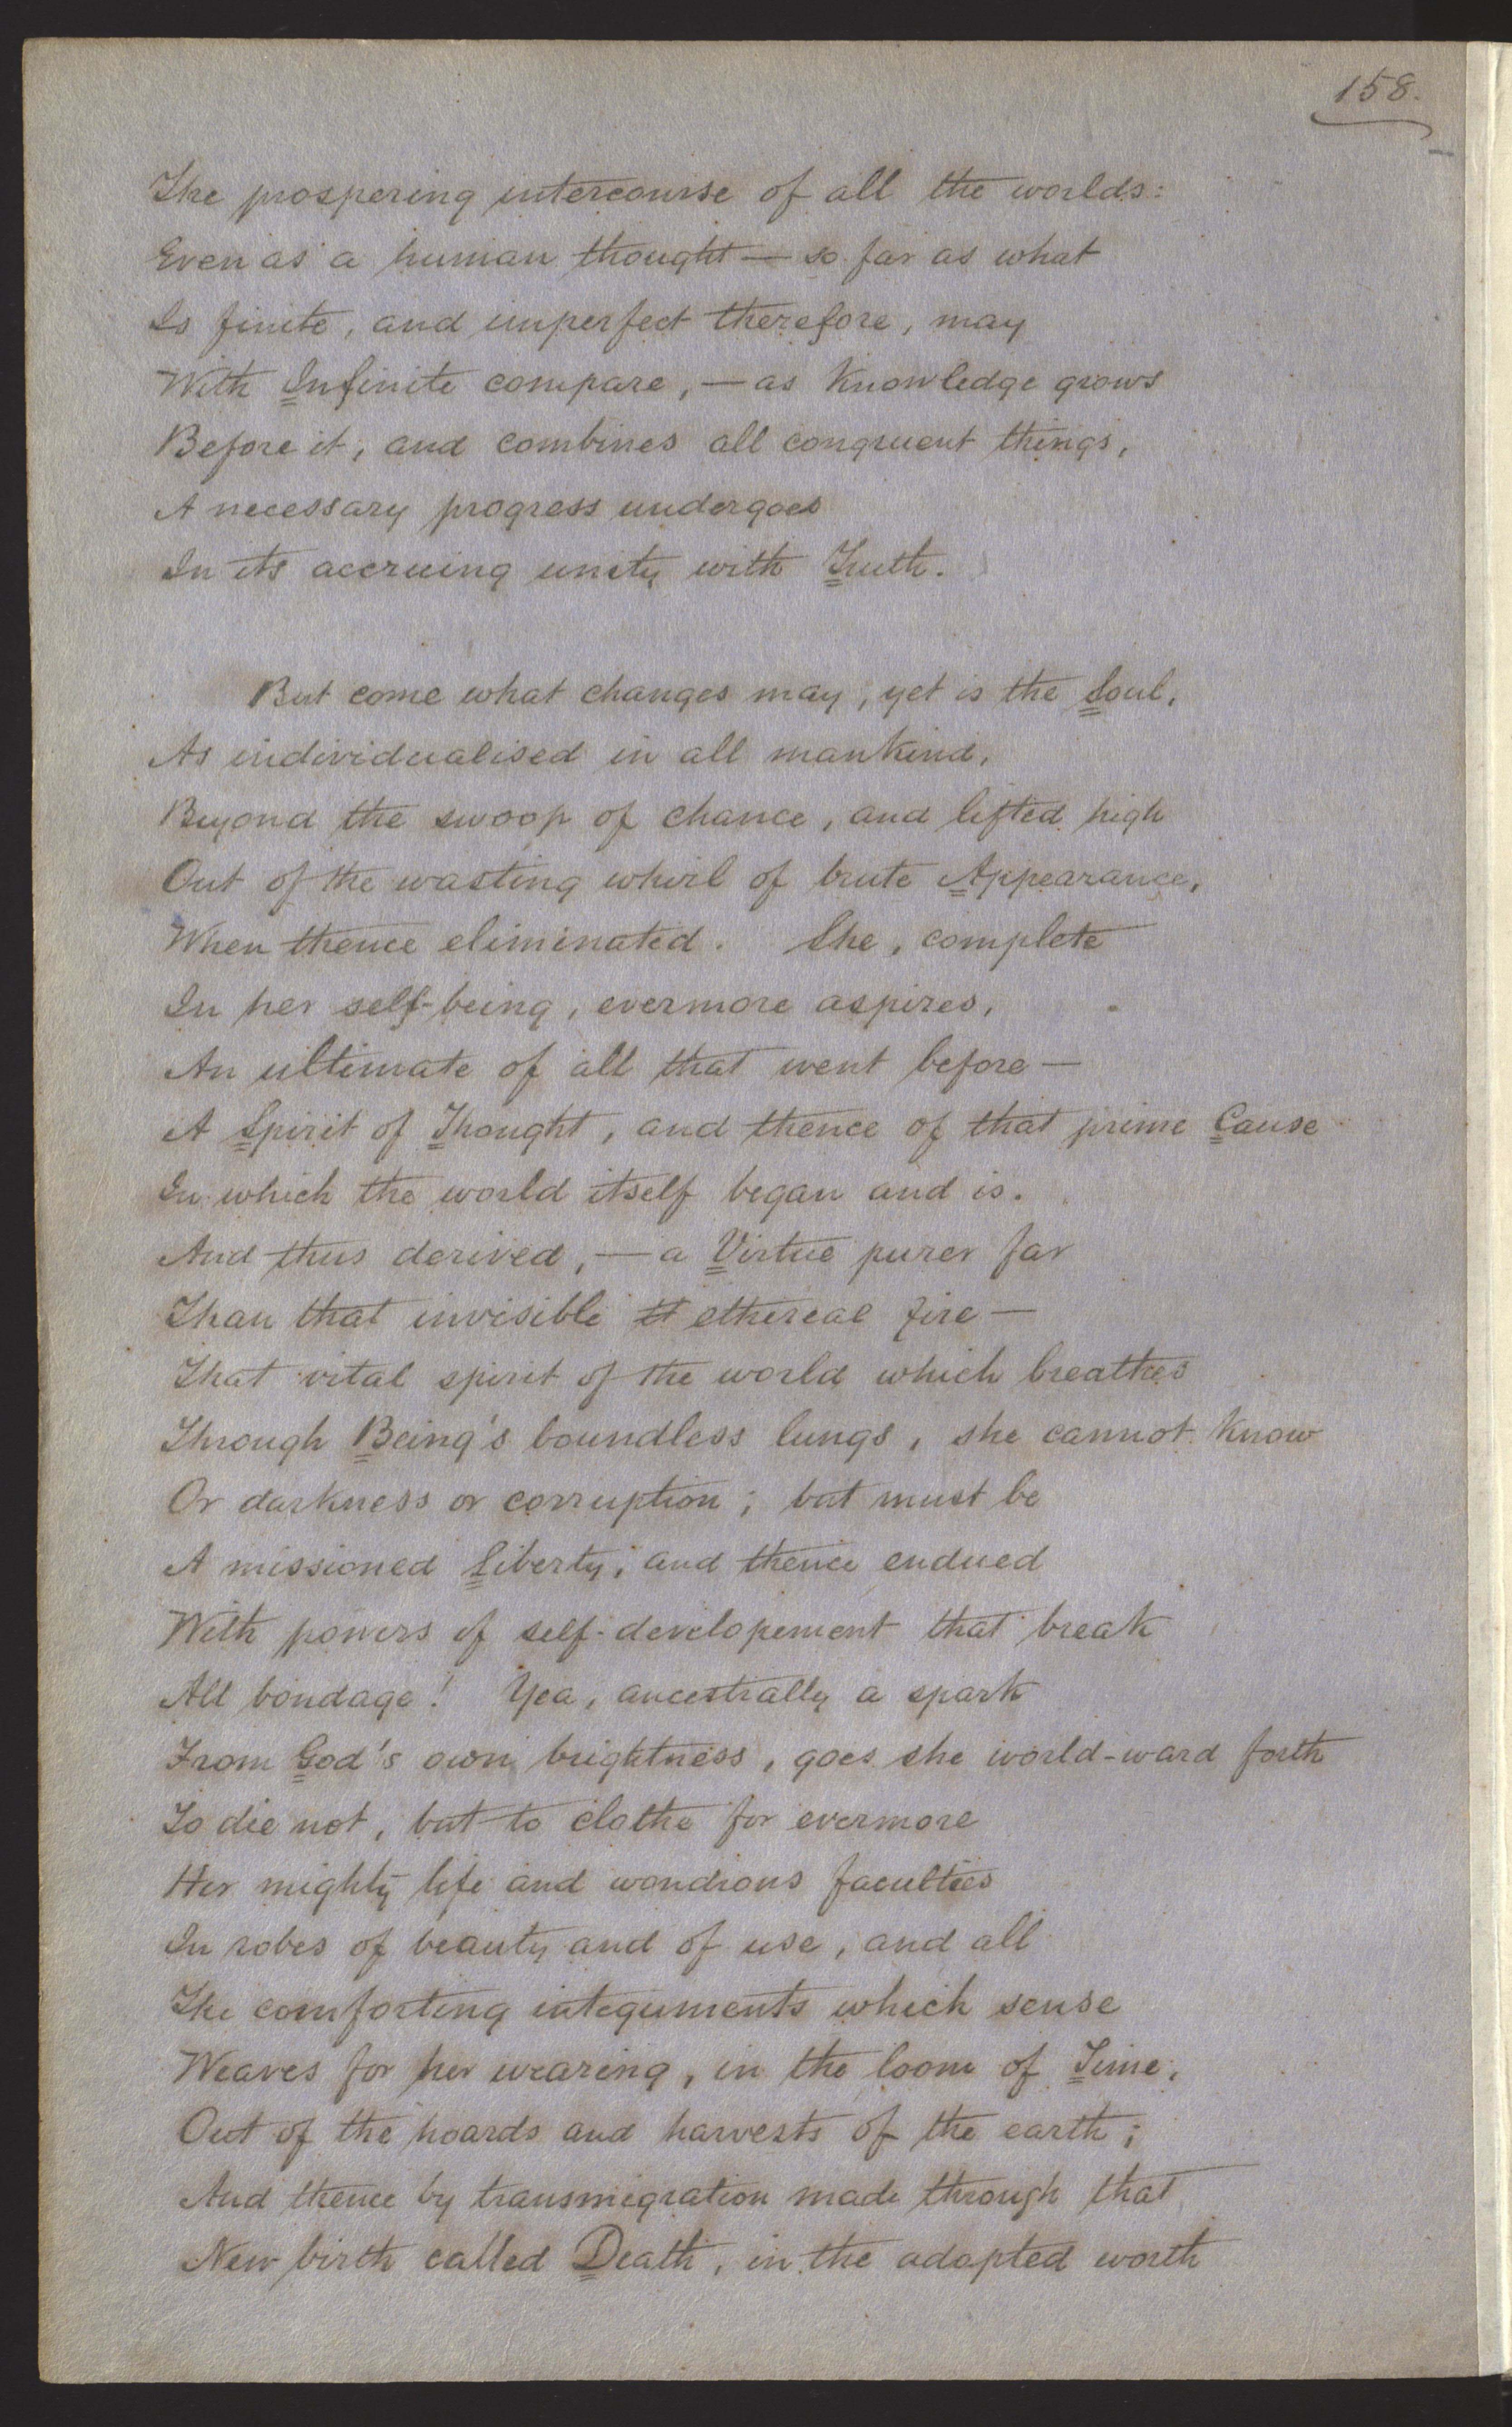 158.
The prospering intercourse of all the worlds:
Even as a human thought — so far as what
Is finite, and imperfect therefore, may
With Infinite compare, — as knowledge grows
Before it, and combines all congruent things,
A necessary progress undergoes
In its accruing unity with Truth.
But come what changes may, yet is the Soul,
As individualised in all mankind,
Beyond the swoop of chance, and lifted high
Out of the wasting whirl of brute Appearance,
When thence eliminated. She, complete
In her self-being, evermore aspires,
An ultimate of all that went before —
A Spirit of Thought, and thence of that prime Cause
In which the world itself began and is.
And thus derived, — a Virtue purer far
Than that invisible ethereal fire —
That vital spirit of the world which breathes
Through Being's boundless lungs, she cannot know
Or darkness or corruption; but must be
A missioned Liberty; and thence endued
With powers of self-developement that break
All bondage! Yea, ancestrally a spark
From God's own brightness, goes she world-ward forth
To die not, but to clothe for evermore
Her mighty life and wondrous faculties
In robes of beauty and of use, and all
The comforting integuments which sense
Weaves for her wearing, in the loom of Time,
Out of the hoards and harvests of the earth;
And thence by transmigration made through that
New birth called Death, in the adopted worth